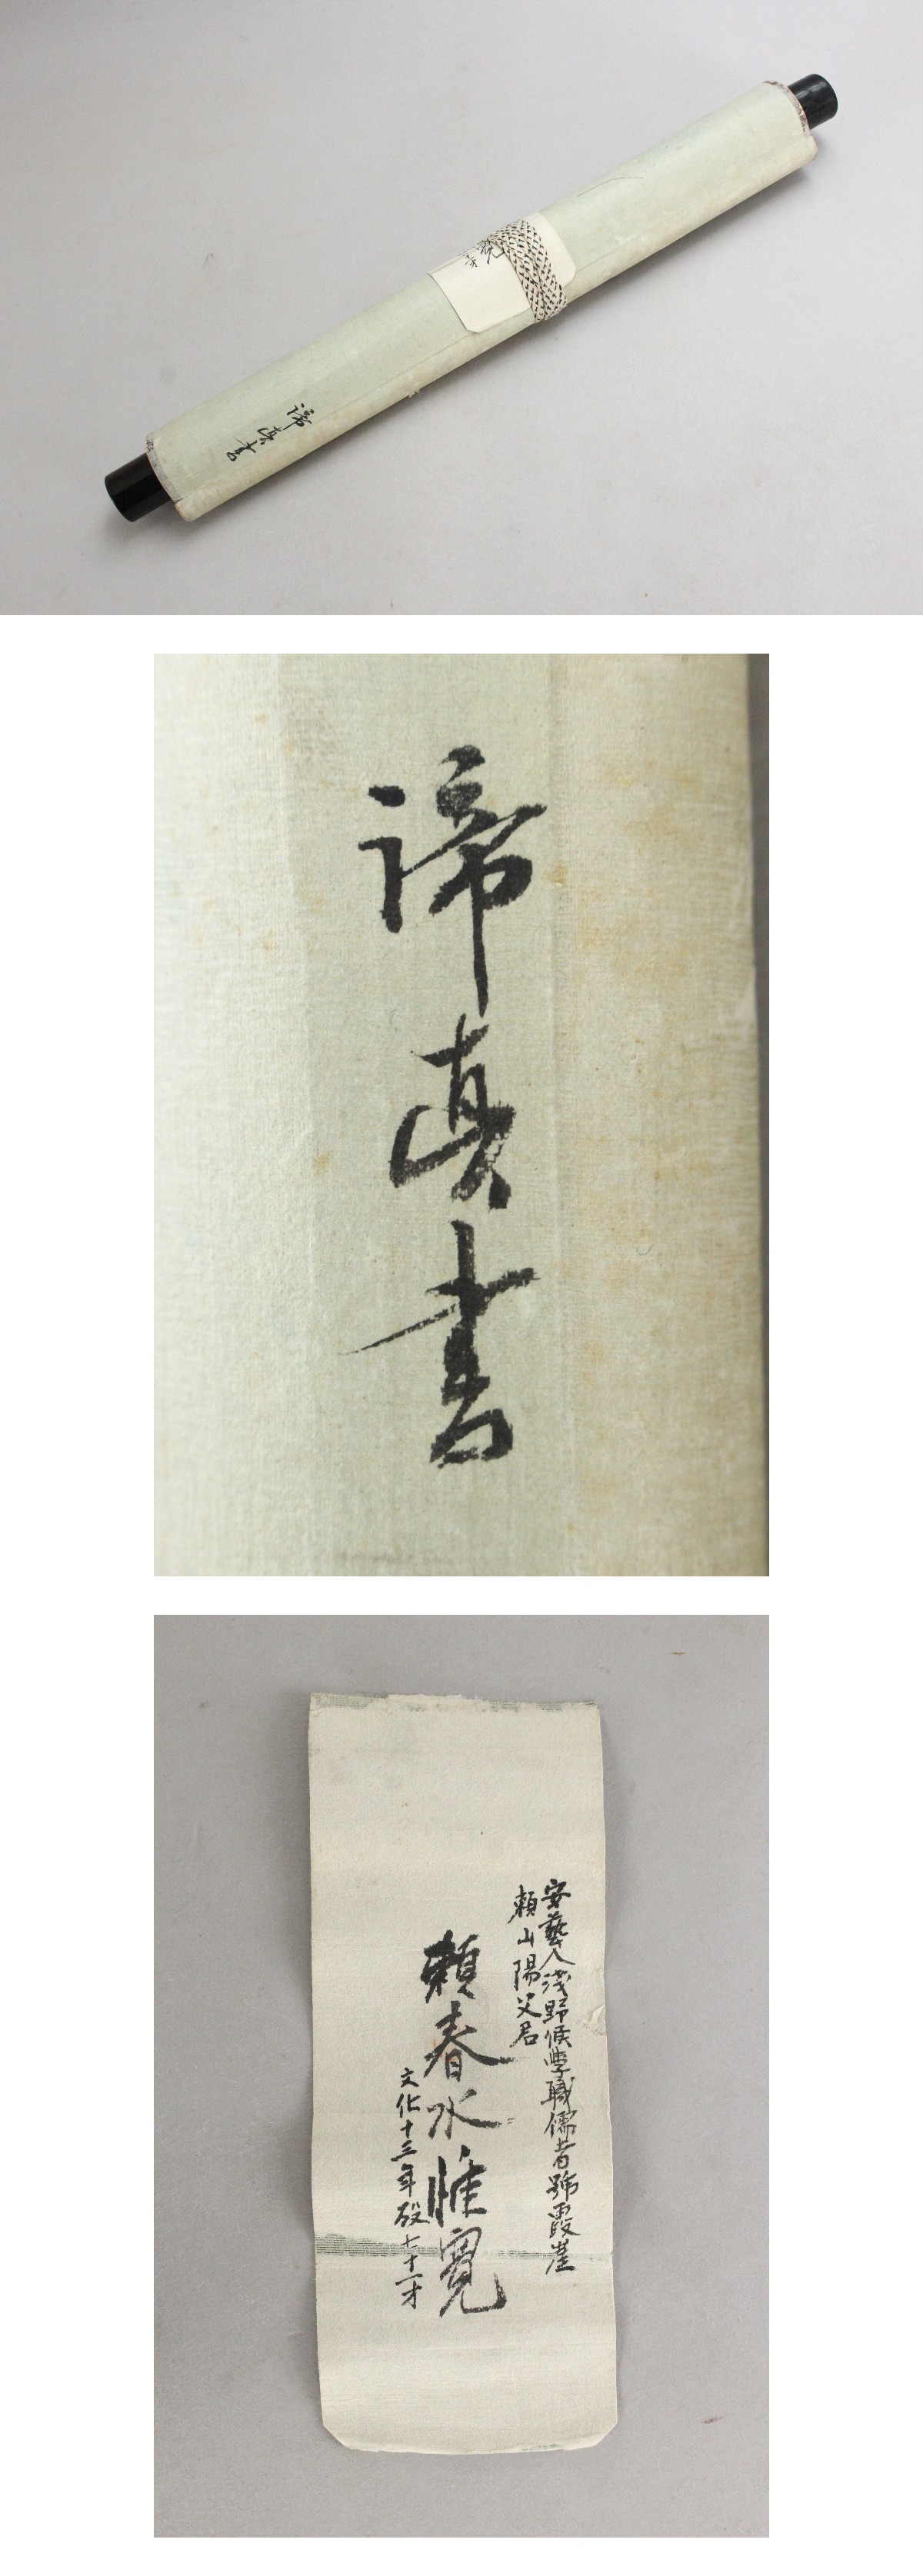 諦真書
諦真書
安藝人浅野候學職儒者號霞崖
頼山陽父君
頼春水惟寛
文化十三年歿七十一才